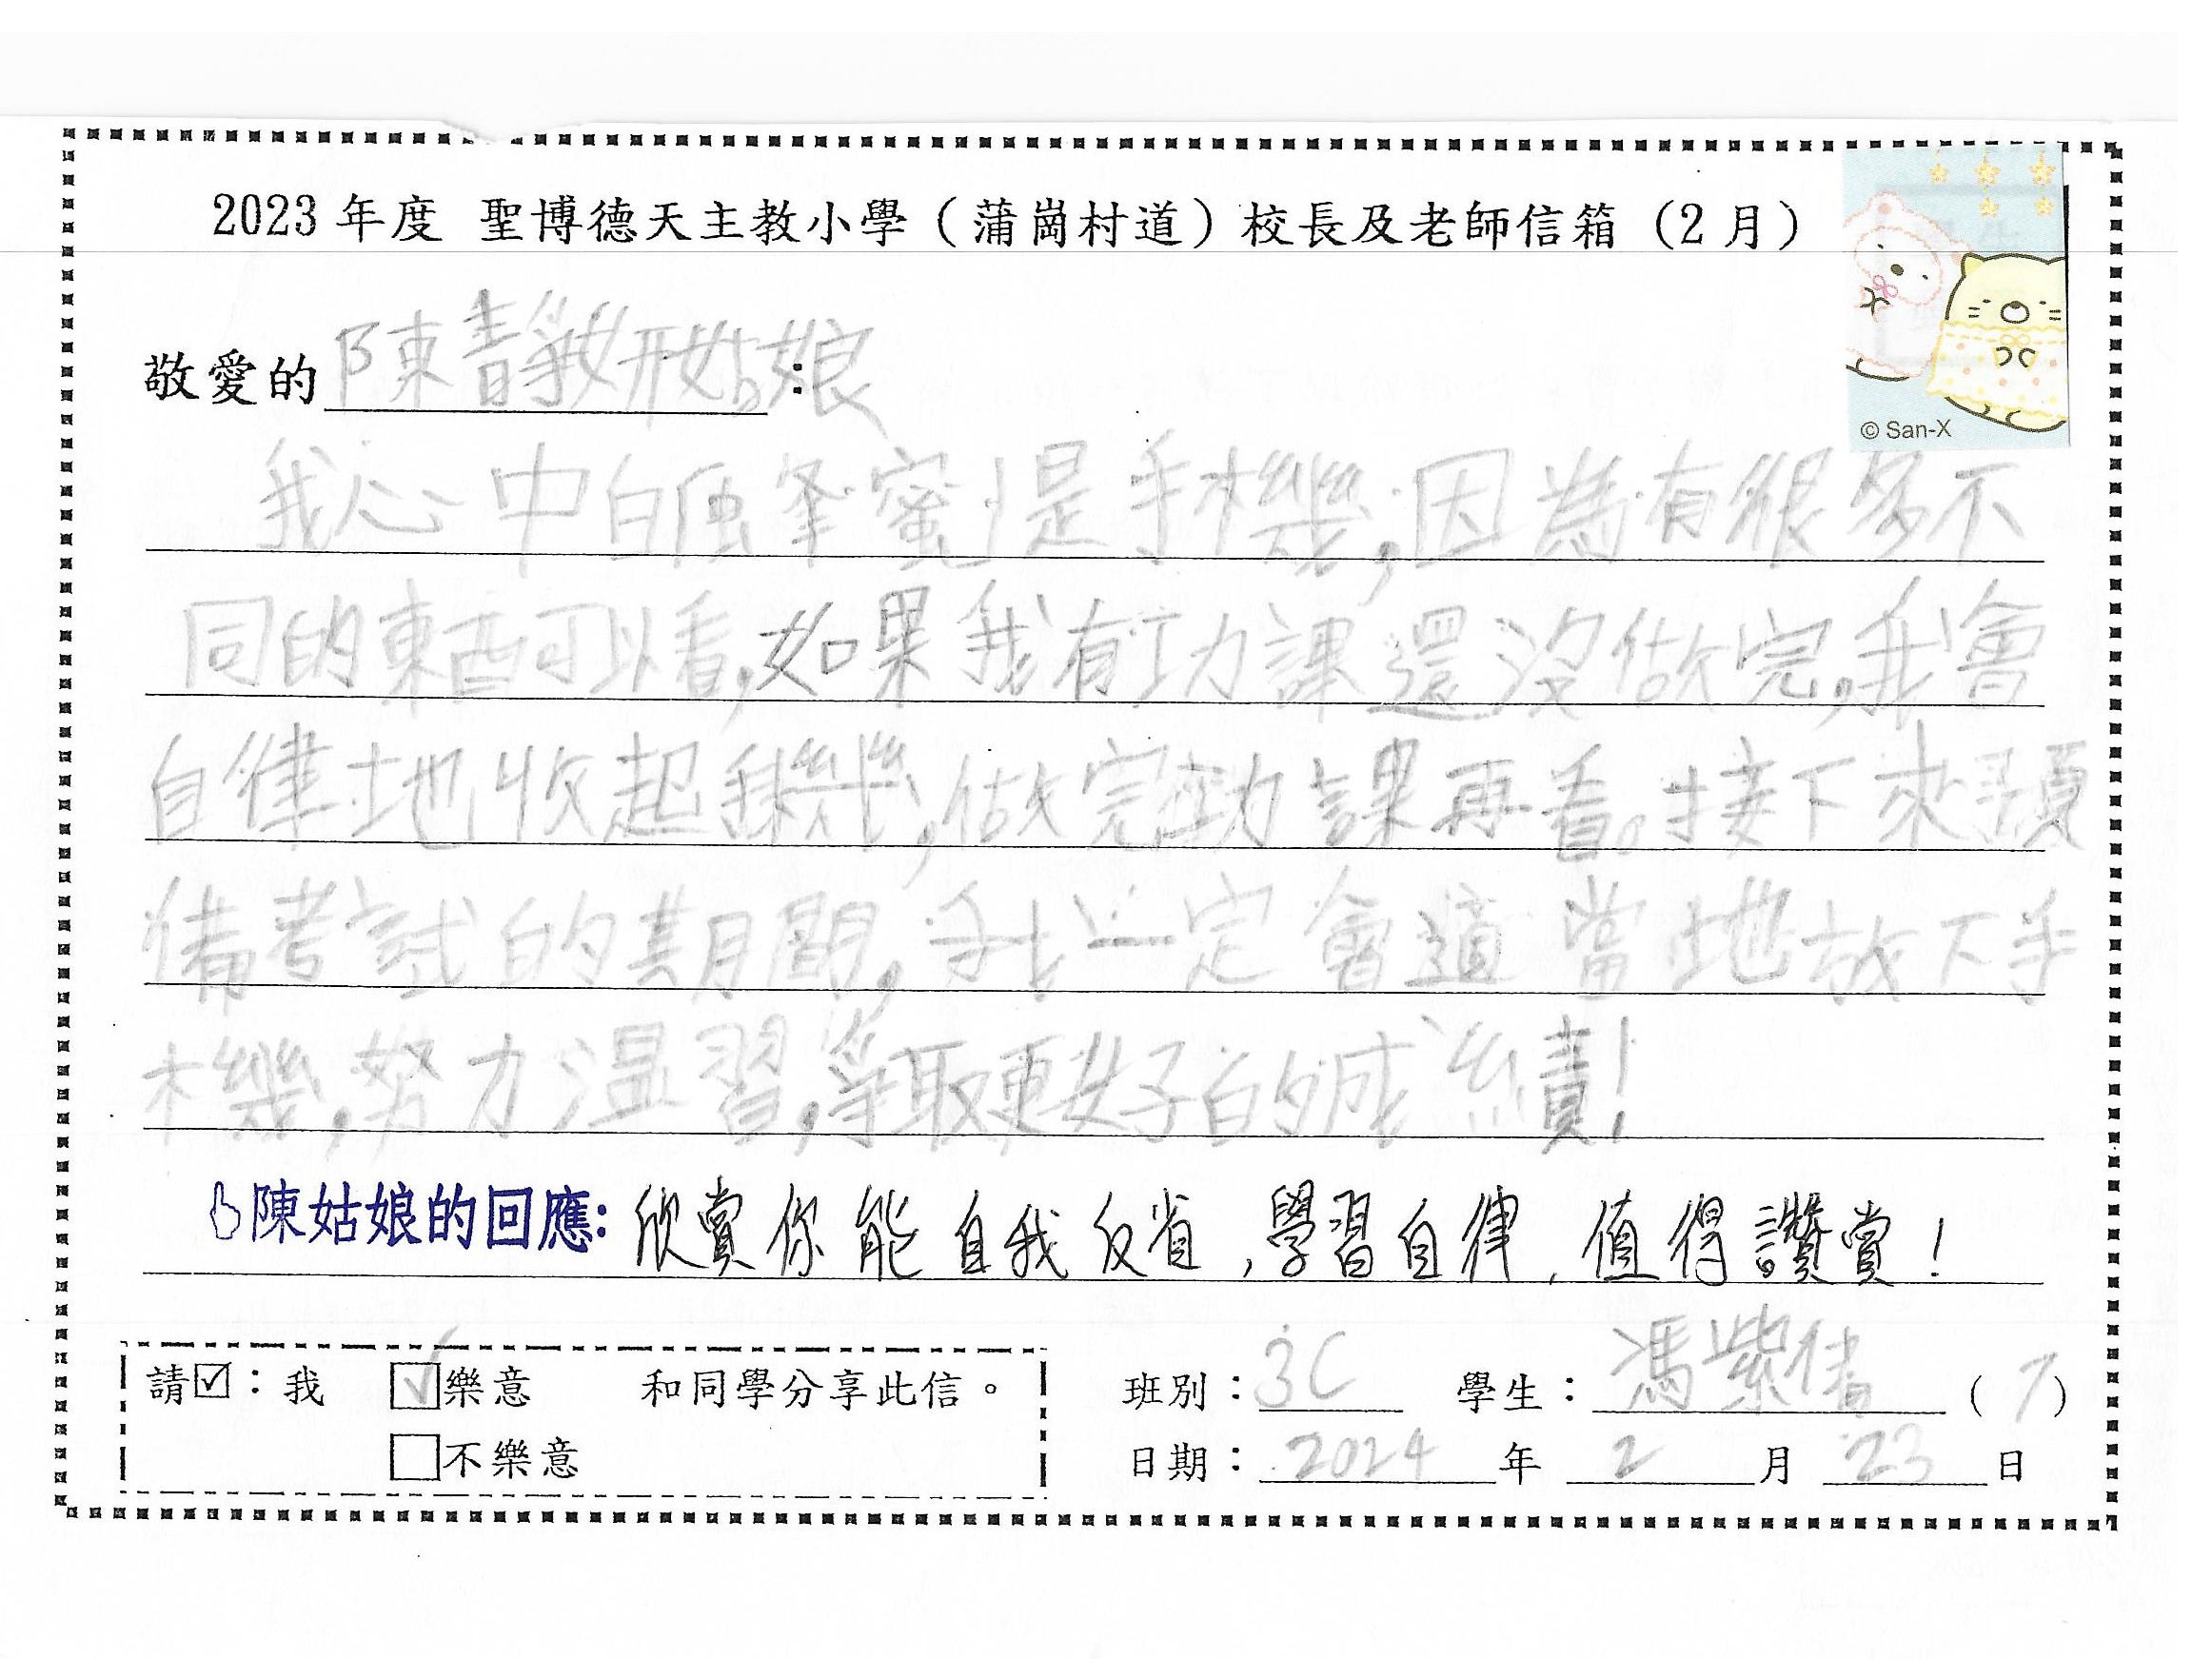 2023 年度 聖博德天主教小學（蒲崗村道）校長及老師信箱（2 月）
敬愛的陳靜妍姑娘：
© San-X
我心中的蜂蜜是手機,因為有很多不
同的東西可以看,如果我有功課還沒做完,我會
自律地收起手機,做完功課再看。接下來預
備考試的期間,我一定會適當地放下手
機,努力溫習,爭取更好的成績!
陳姑娘的回應: 欣賞你能自我反省,學習自律,值得讚賞!
請☑：我 ☑樂意 和同學分享此信。
□不樂意
班別：3C 學生：馮紫倩 (7)
日期：2024 年 2 月 23 日